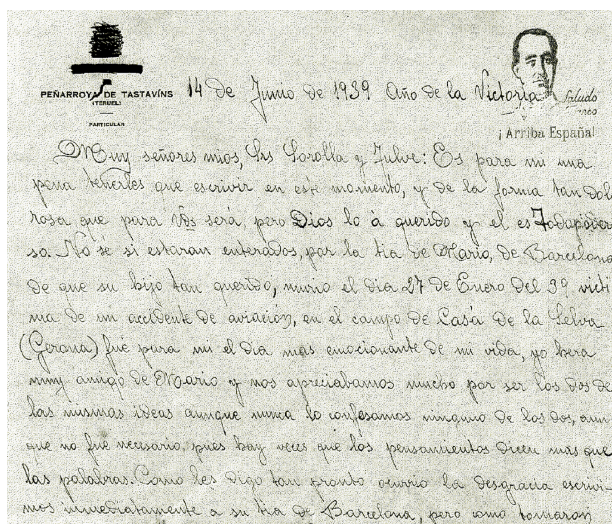 PEÑARROYA DE TASTAVÍNS
(TERUEL)
PARTICULAR
14 de Junio de 1939 Año de la Victoria
Saludo
¡Arriba España!
Muy señores mios, Srs Sorolla y Julve: Es para mi una
pena tenerles que escribir en este momento, y de la forma tan dol
rosa que para Vds será, pero Dios lo á querido y el es Todapoder
so. No se si estaran enterados, por la tia de Mario, de Barcelona
de que su hijo tan querido, murio el dia 27 de Enero del 39, victi
ma de un accidente de aviación, en el campo de Casá de la Selva
(Gerona) fué para mi el dia mas emocionante de mi vida, yo hera
muy amigo de Mario y nos apreciabamos mucho por ser los dos de
las mismas ideas aunque nunca lo confesamos ninguno de los dos, aun
que no fué necesario, pues hay veces que los pensamientos dicen mas que
las palabras. Como les digo tan pronto ocurrio la desgracia escrivi-
mos inmediatamente a su tia de Barcelona, pero como tomaron